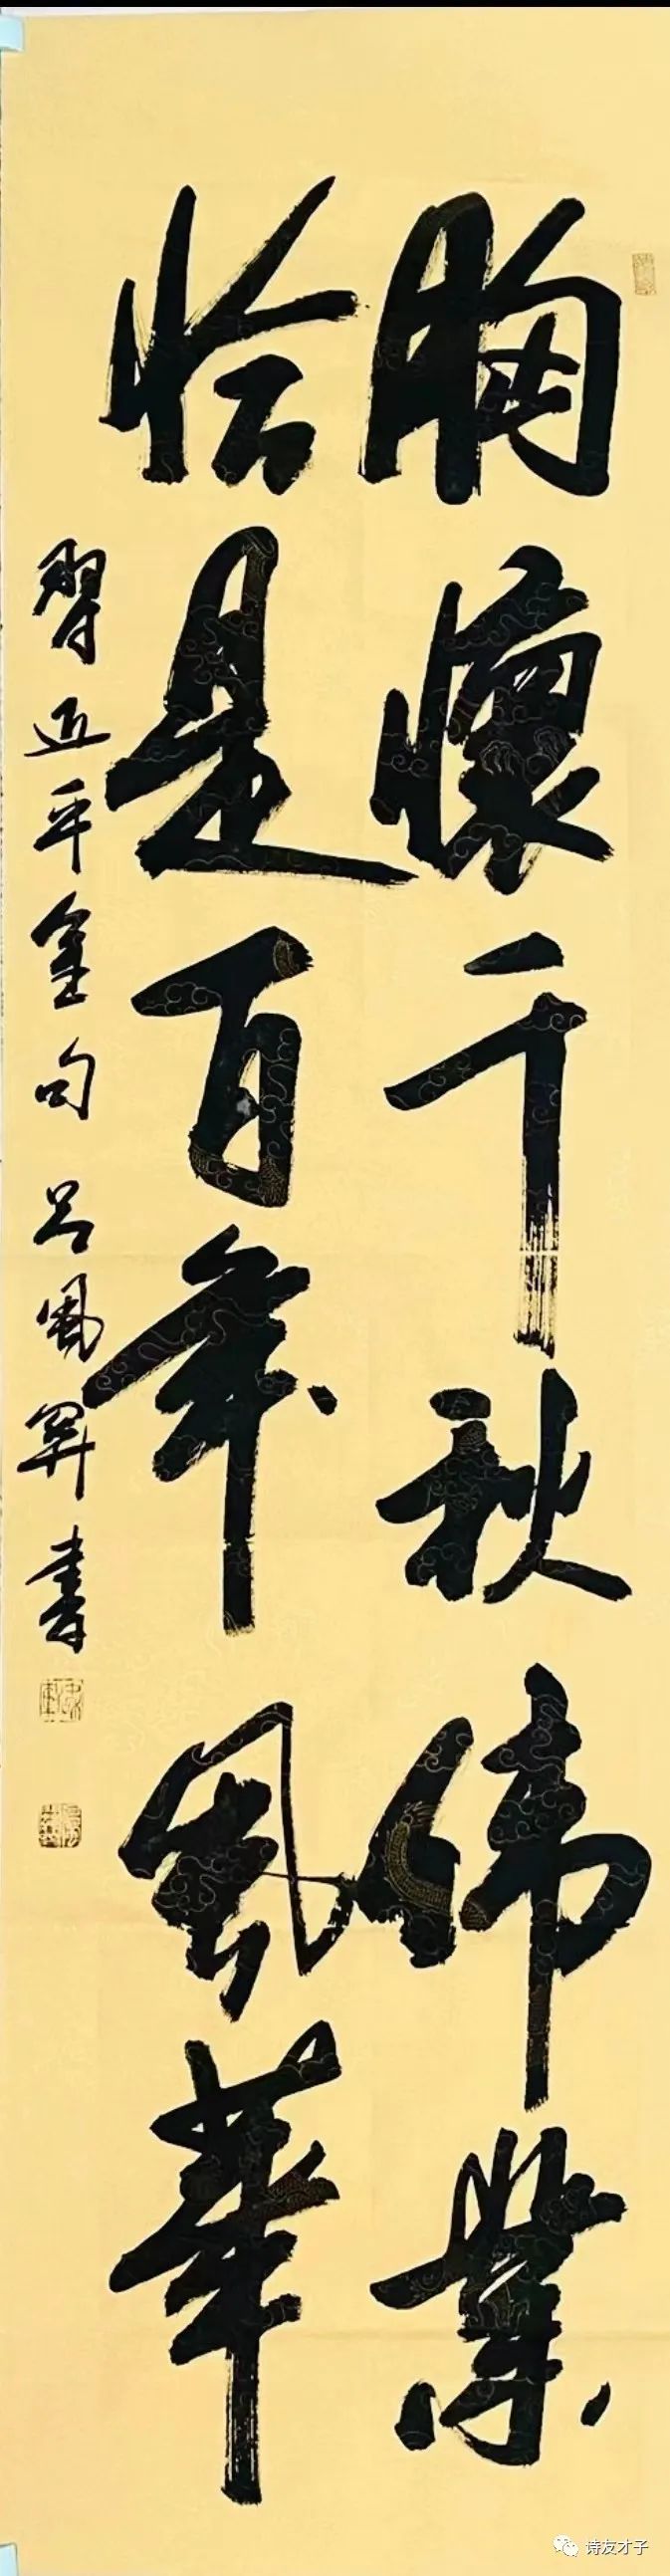 胸懷千秋偉業
恰是百年風華
習近平金句 吕風舞書
诗友才子